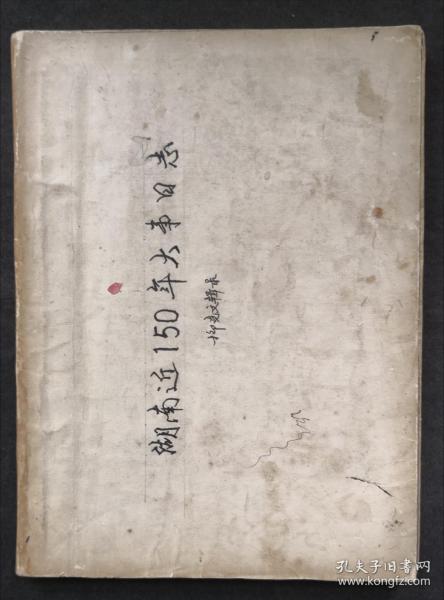 湖南近150年大事日志
柳克文辑录
孔夫子旧书网
www.kongfz.com